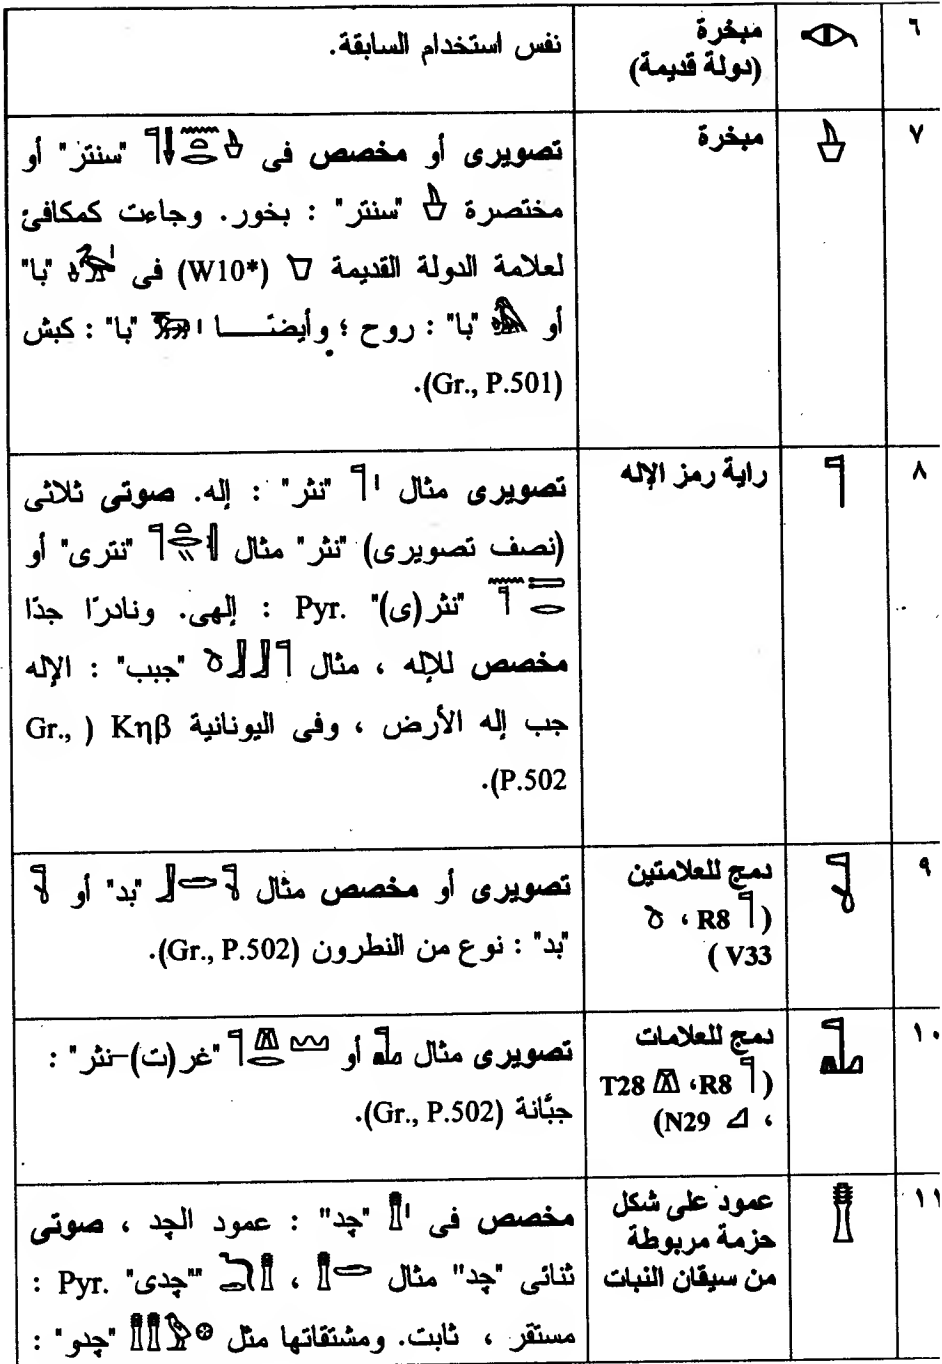 ٦
مبخرة
(دولة قديمة)
نفس استخدام السابقة.
٧
مبخرة
تصويرى أو مخصص فى 𓊹𓋴𓈖𓍿𓂋𓊸 "سنتر" أو
مختصرة 𓊸 "سنتر" : بخور. وجاءت كمكافئ
لعلامة الدولة القديمة (W10*) فى "با"
أو "با" : روح ؛ وأيضـًـا "با" : كبش
(Gr., P.501).
٨
راية رمز الإله
تصويرى مثال 𓊹𓏤 "نثر" : إله. صوتى ثلاثى
(نصف تصويرى) "نثر" مثال "نترى" أو
"نثر(ى)" Pyr. : إلهى. ونادرًا جدًا
مخصص للإله ، مثال "جبب" : الإله
جب إله الأرض ، وفى اليونانية Κηβ ( Gr.,
P.502).
٩
دمج للعلامتين
(𓊹 R8 ، 𓎛
V33 )
تصويرى أو مخصص مثال "بد" أو
"بد" : نوع من النطرون (Gr., P.502).
١٠
دمج للعلامات
(𓊹 R8، 𓌨 T28
، 𓈎 N29)
تصويرى مثال أو "غر(ت)-نثر" :
جبَّانة (Gr., P.502).
١١
عمود على شكل
حزمة مربوطة
من سيقان النبات
مخصص فى 𓊽𓏤 "چد" : عمود الچد ، صوتى
ثنائى "چد" مثال ، "چدى" Pyr. :
مستقر ، ثابت. ومشتقاتها مثل "چدو" :